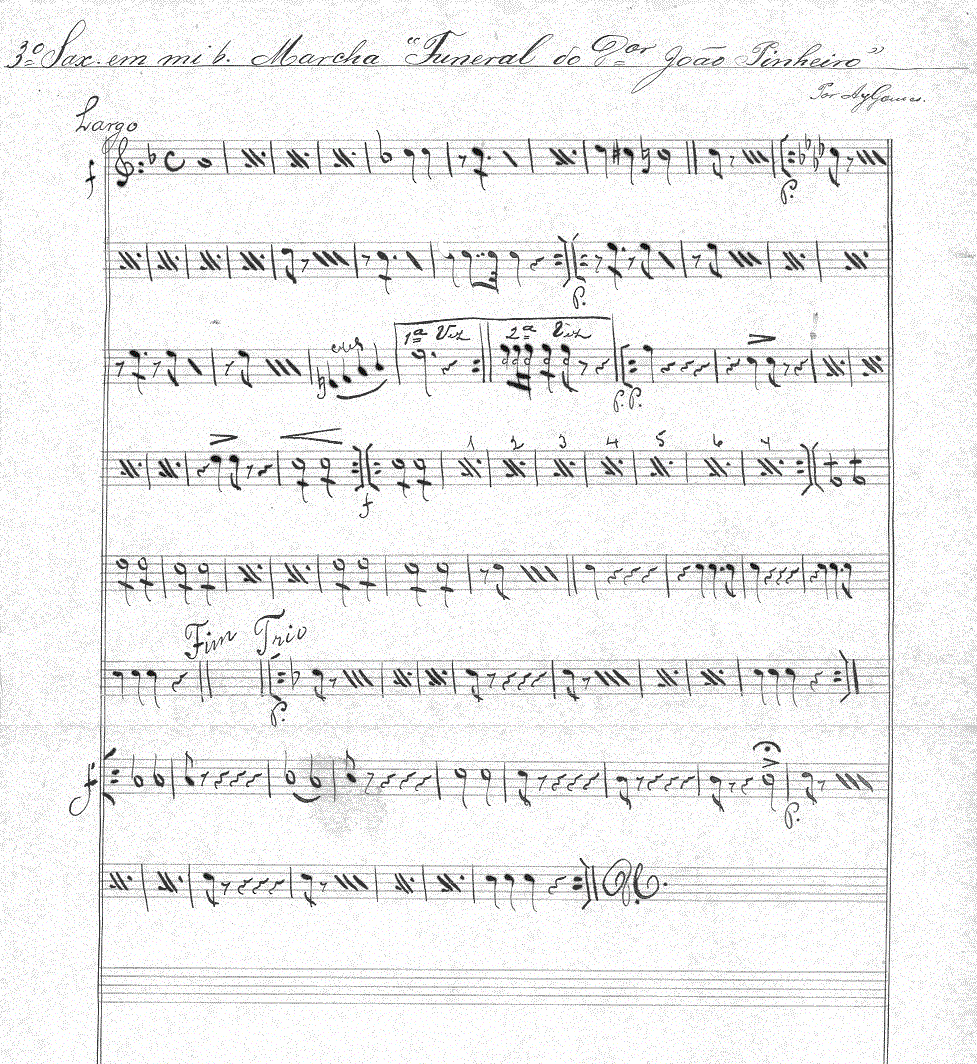 3º Sax. em mi b. Marcha "Funeral do Dor João Pinheiro"
Por AyGomes.
Largo
f
p.
p.
1ª Vez 2ª Vez
p.p.
1 2 3 4 5 6 7
f
Fim Trio
p.
f
p.